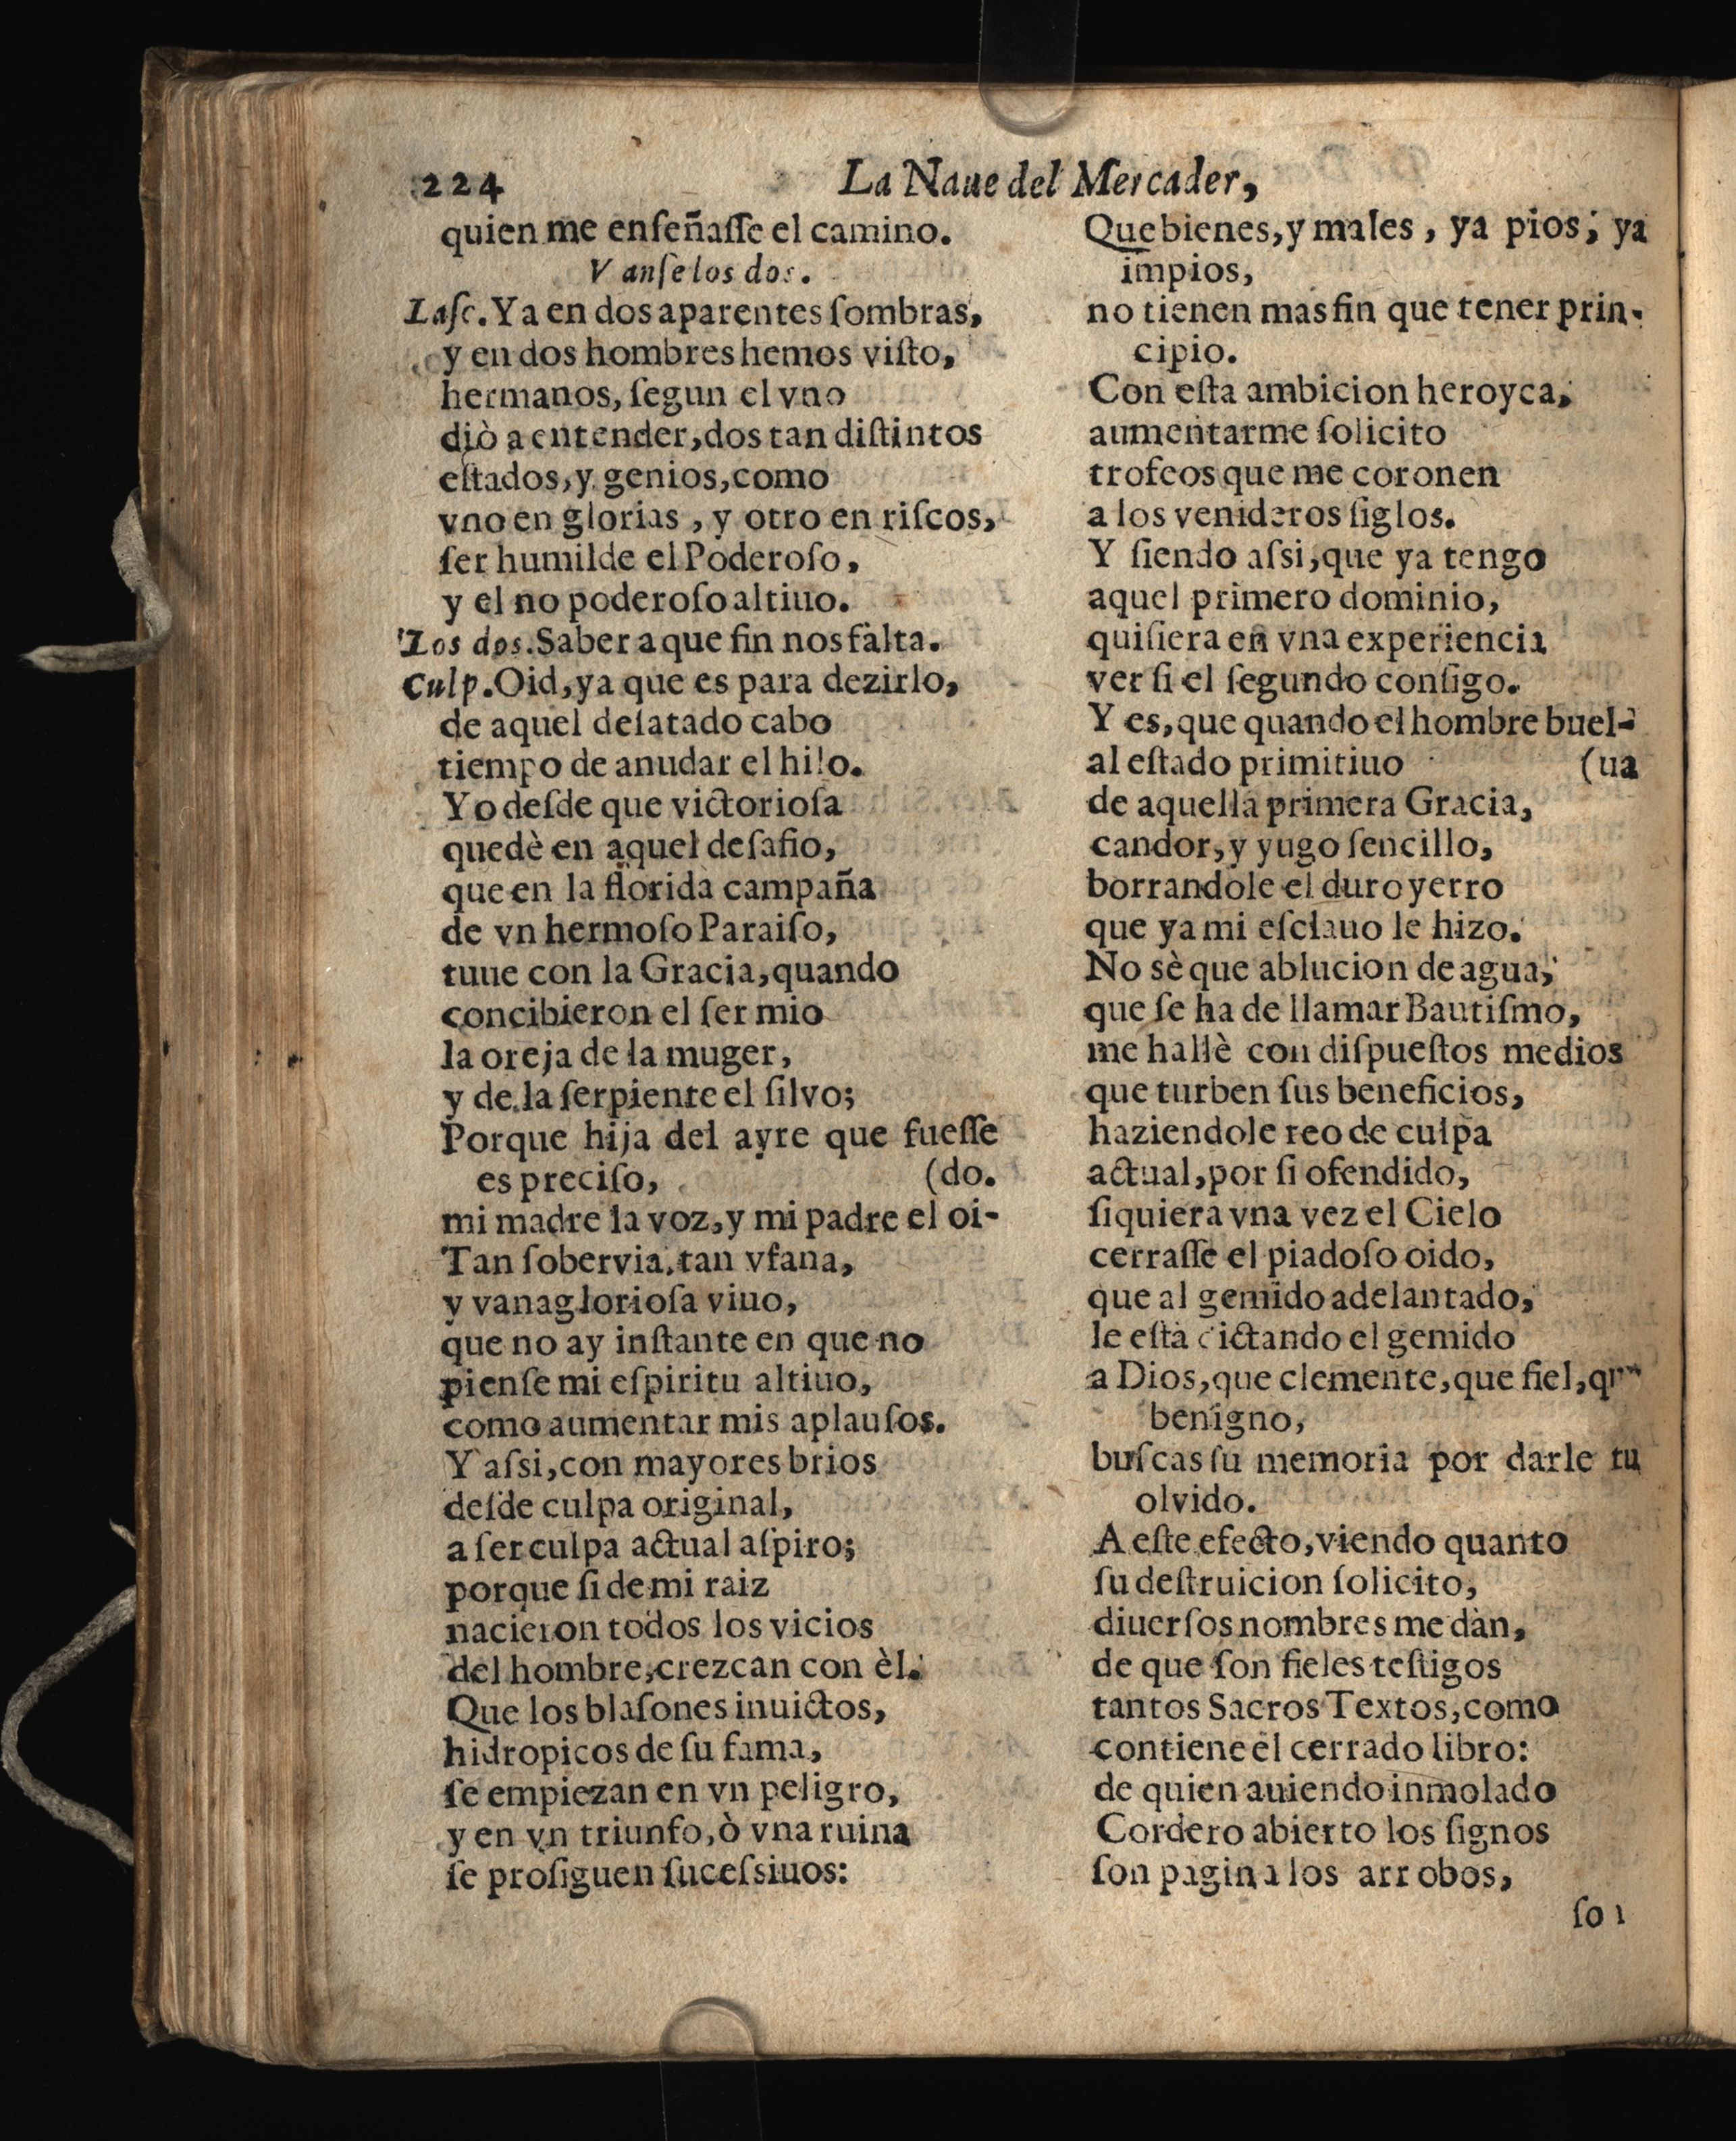 224
La Naue del Mercader,
quien me enſeñaſſe el camino.
Vanſe los dos.
Laſc. Ya en dos aparentes ſombras,
y en dos hombres hemos viſto,
hermanos, ſegun el vno
diò a entender, dos tan diſtintos
eſtados, y genios, como
vno en glorias, y otro en riſcos,
ſer humilde el Poderoſo,
y el no poderoſo altiuo.
Los dos. Saber a que fin nos falta.
Culp. Oid, ya que es para dezirlo,
de aquel deſatado cabo
tiempo de anudar el hilo.
Yo deſde que victorioſa
quedè en aquel deſafio,
que en la florida campaña
de vn hermoſo Paraiſo,
tuue con la Gracia, quando
concibieron el ſer mio
la oreja de la muger,
y de la ſerpiente el ſilvo;
Porque hija del ayre que fueſſe
es preciſo, (do.
mi madre la voz, y mi padre el oi-
Tan ſobervia, tan vfana,
y vanaglorioſa viuo,
que no ay inſtante en que no
pienſe mi eſpiritu altiuo,
como aumentar mis aplauſos.
Y aſsi, con mayores brios
deſde culpa original,
a ſer culpa actual aſpiro;
porque ſi de mi raiz
nacieron todos los vicios
del hombre, crezcan con èl.
Que los blaſones inuictos,
hidropicos de ſu fama,
ſe empiezan en vn peligro,
y en vn triunfo, ò vna ruina
ſe proſiguen ſuceſsiuos:
Que bienes, y males, ya pios, ya
impios,
no tienen mas fin que tener prin-
cipio.
Con eſta ambicion heroyca,
aumentarme ſolicito
trofeos que me coronen
a los venideros ſiglos.
Y ſiendo aſsi, que ya tengo
aquel primero dominio,
quiſiera en vna experiencia
ver ſi el ſegundo conſigo.
Y es, que quando el hombre buel-
al eſtado primitiuo (ua
de aquella primera Gracia,
candor, y yugo ſencillo,
borrandole el duro yerro
que ya mi eſclauo le hizo.
No sè que ablucion de agua,
que ſe ha de llamar Bautiſmo,
me hallè con diſpueſtos medios
que turben ſus beneficios,
haziendole reo de culpa
actual, por ſi ofendido,
ſiquiera vna vez el Cielo
cerraſſe el piadoſo oido,
que al gemido adelantado,
le eſtà dictando el gemido
a Dios, que clemente, que fiel,
benigno,
buſcas ſu memoria por darle tu
olvido.
A eſte efecto, viendo quanto
ſu deſtruicion ſolicito,
diuerſos nombres me dàn,
de que ſon fieles teſtigos
tantos Sacros Textos, como
contiene el cerrado libro:
de quien auiendo inmolado
Cordero abierto los ſignos
ſon pagina los arrobos,